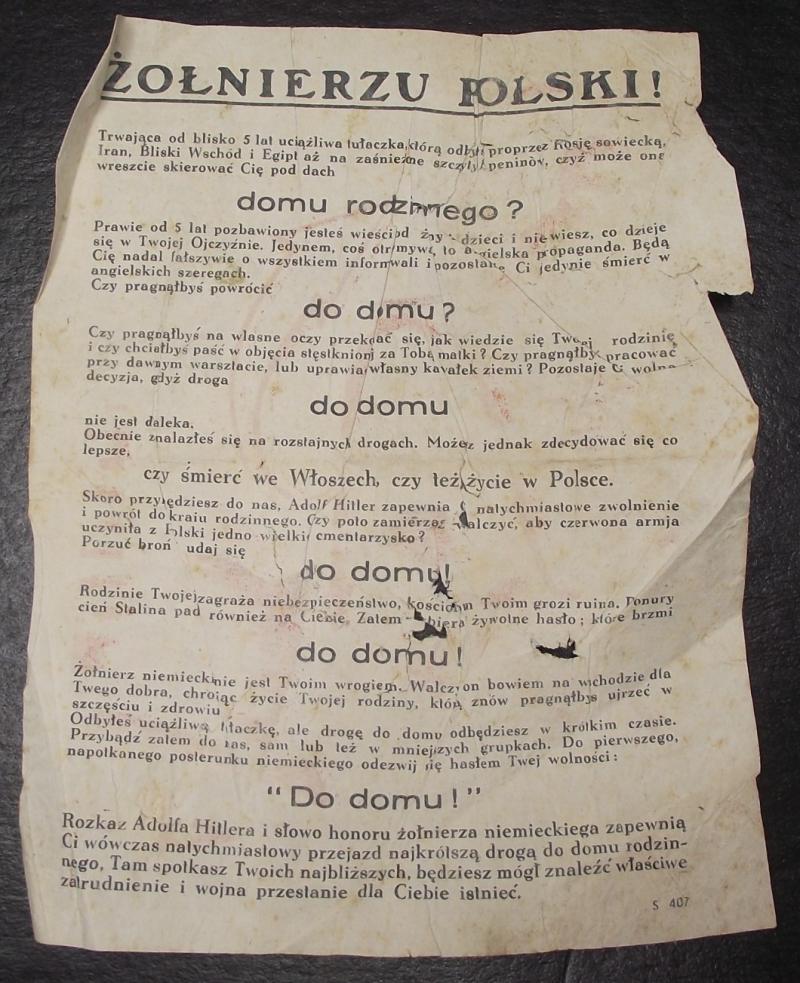 ŻOŁNIERZU POLSKI!
Trwająca od blisko 5 lat uciążliwa tułaczka, którą odbyłeś poprzez Rosję sowiecką,
Iran, Bliski Wschód i Egipt aż na zaśnieżne szczyty peninów, czyż może one
wreszcie skierować Cię pod dach
domu rodzinnego?
Prawie od 5 lat pozbawiony jesteś wieści od żony dzieci i nie wiesz, co dzieje
się w Twojej Ojczyźnie. Jedynem, coś otrzymywał, to angielska propaganda. Będą
Cię nadal fałszywie o wszystkiem informowali i pozostanie Ci jedynie śmierć w
angielskich szeregach.
Czy pragnąłbyś powrócić
do domu?
Czy pragnąłbyś na wlasne oczy przekonać się, jak wiedzie się Twojej rodzinie
i czy chciałbyś paść w objęcia stęstknionej za Tobą matki? Czy pragnąłbyś pracować
przy dawnym warsztacie, lub uprawiać własny kawałek ziemi? Pozostaje Ci wolna
decyzja, gdyż droga
do domu
nie jest daleka.
Obecnie znalazłeś się na rozstajnych drogach. Możesz jednak zdecydować się co
lepsze,
czy śmierć we Włoszech, czy też życie w Polsce.
Skoro przyjędziesz do nas, Adolf Hitler zapewnia natychmiastowe zwolnienie
i powrót do kraju rodzinnego. Czy poto zamierzasz walczyć, aby czerwona armja
uczyniła z Polski jedno wielkie cmentarzysko?
Porzuć broń udaj się
do domu!
Rodzinie Twojej zagraża niebezpieczeństwo, kościołom Twoim grozi ruina. Ponury
cień Stalina pad również na Ciebie. Zatem żywotne hasło; które brzmi
do domu!
Żołnierz niemiecki nie jest Twoim wrogiem. Walczy on bowiem na wschodzie dla
Twego dobra, chroiąc życie Twojej rodziny, którą znów pragnąłbyś ujrzeć w
szczęściu i zdrowiu
Odbyłeś uciążliwą tułaczkę, ale drogę do domu odbędziesz w krótkim czasie.
Przybądź zatem do nas, sam lub też w mniejszych grupkach. Do pierwszego,
napotkanego posterunku niemieckiego odezwij się hasłem Twej wolności:
“Do domu!”
Rozkaz Adolfa Hitlera i słowo honoru żołnierza niemieckiega zapewnią
Ci wówczas natychmiastowy przejazd najkrótszą drogą do domu rodzin-
nego, Tam spotkasz Twoich najbliższych, będziesz mógł znaleźć właściwe
zatrudnienie i wojna przestanie dla Ciebie istnieć.
S 407